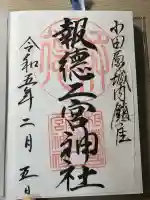 小田原城内鎮座
報徳二宮神社
令和五年二月五日